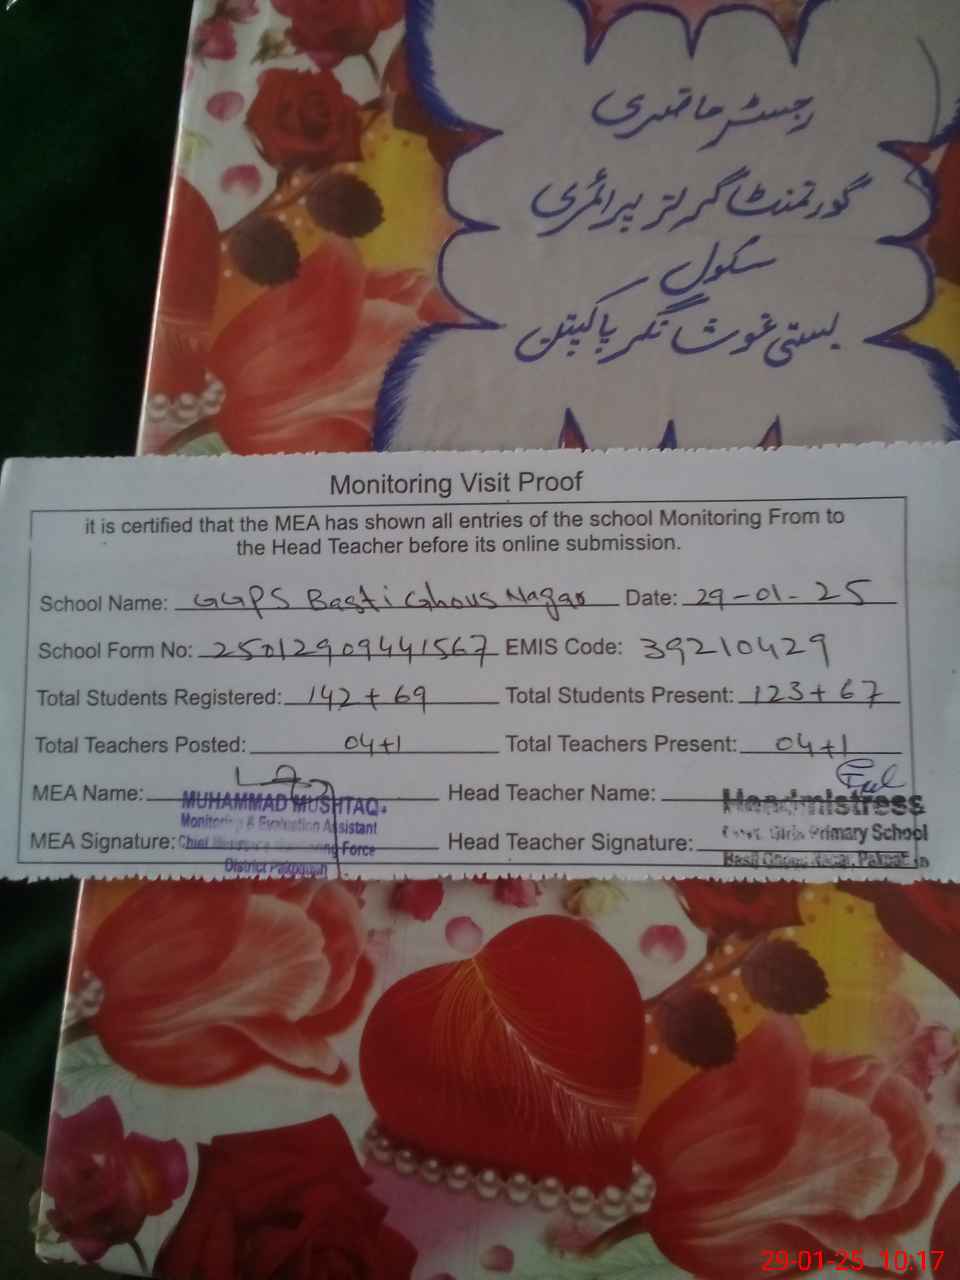 رجسٹر حاضری
گورنمنٹ گرلز پرائمری
سکول
بستی غوث نگر پاکپتن
Monitoring Visit Proof
it is certified that the MEA has shown all entries of the school Monitoring From to
the Head Teacher before its online submission.
School Name: GGPS Basti Ghous Nagar Date: 29-01-25
School Form No: 25012909441567 EMIS Code: 39210429
Total Students Registered: 142+69 Total Students Present: 123+67
Total Teachers Posted: 04+1 Total Teachers Present: 04+1
MEA Name: Head Teacher Name:
MUHAMMAD MUSHTAQ. Headmistress
Monitoring & Evaluation Assistant
MEA Signature: Head Teacher Signature:
Chief Monitoring Force Govt. Girls Primary School
District Pakpattan Basti Ghous Nagar, Pakpattan
29-01-25 10:17